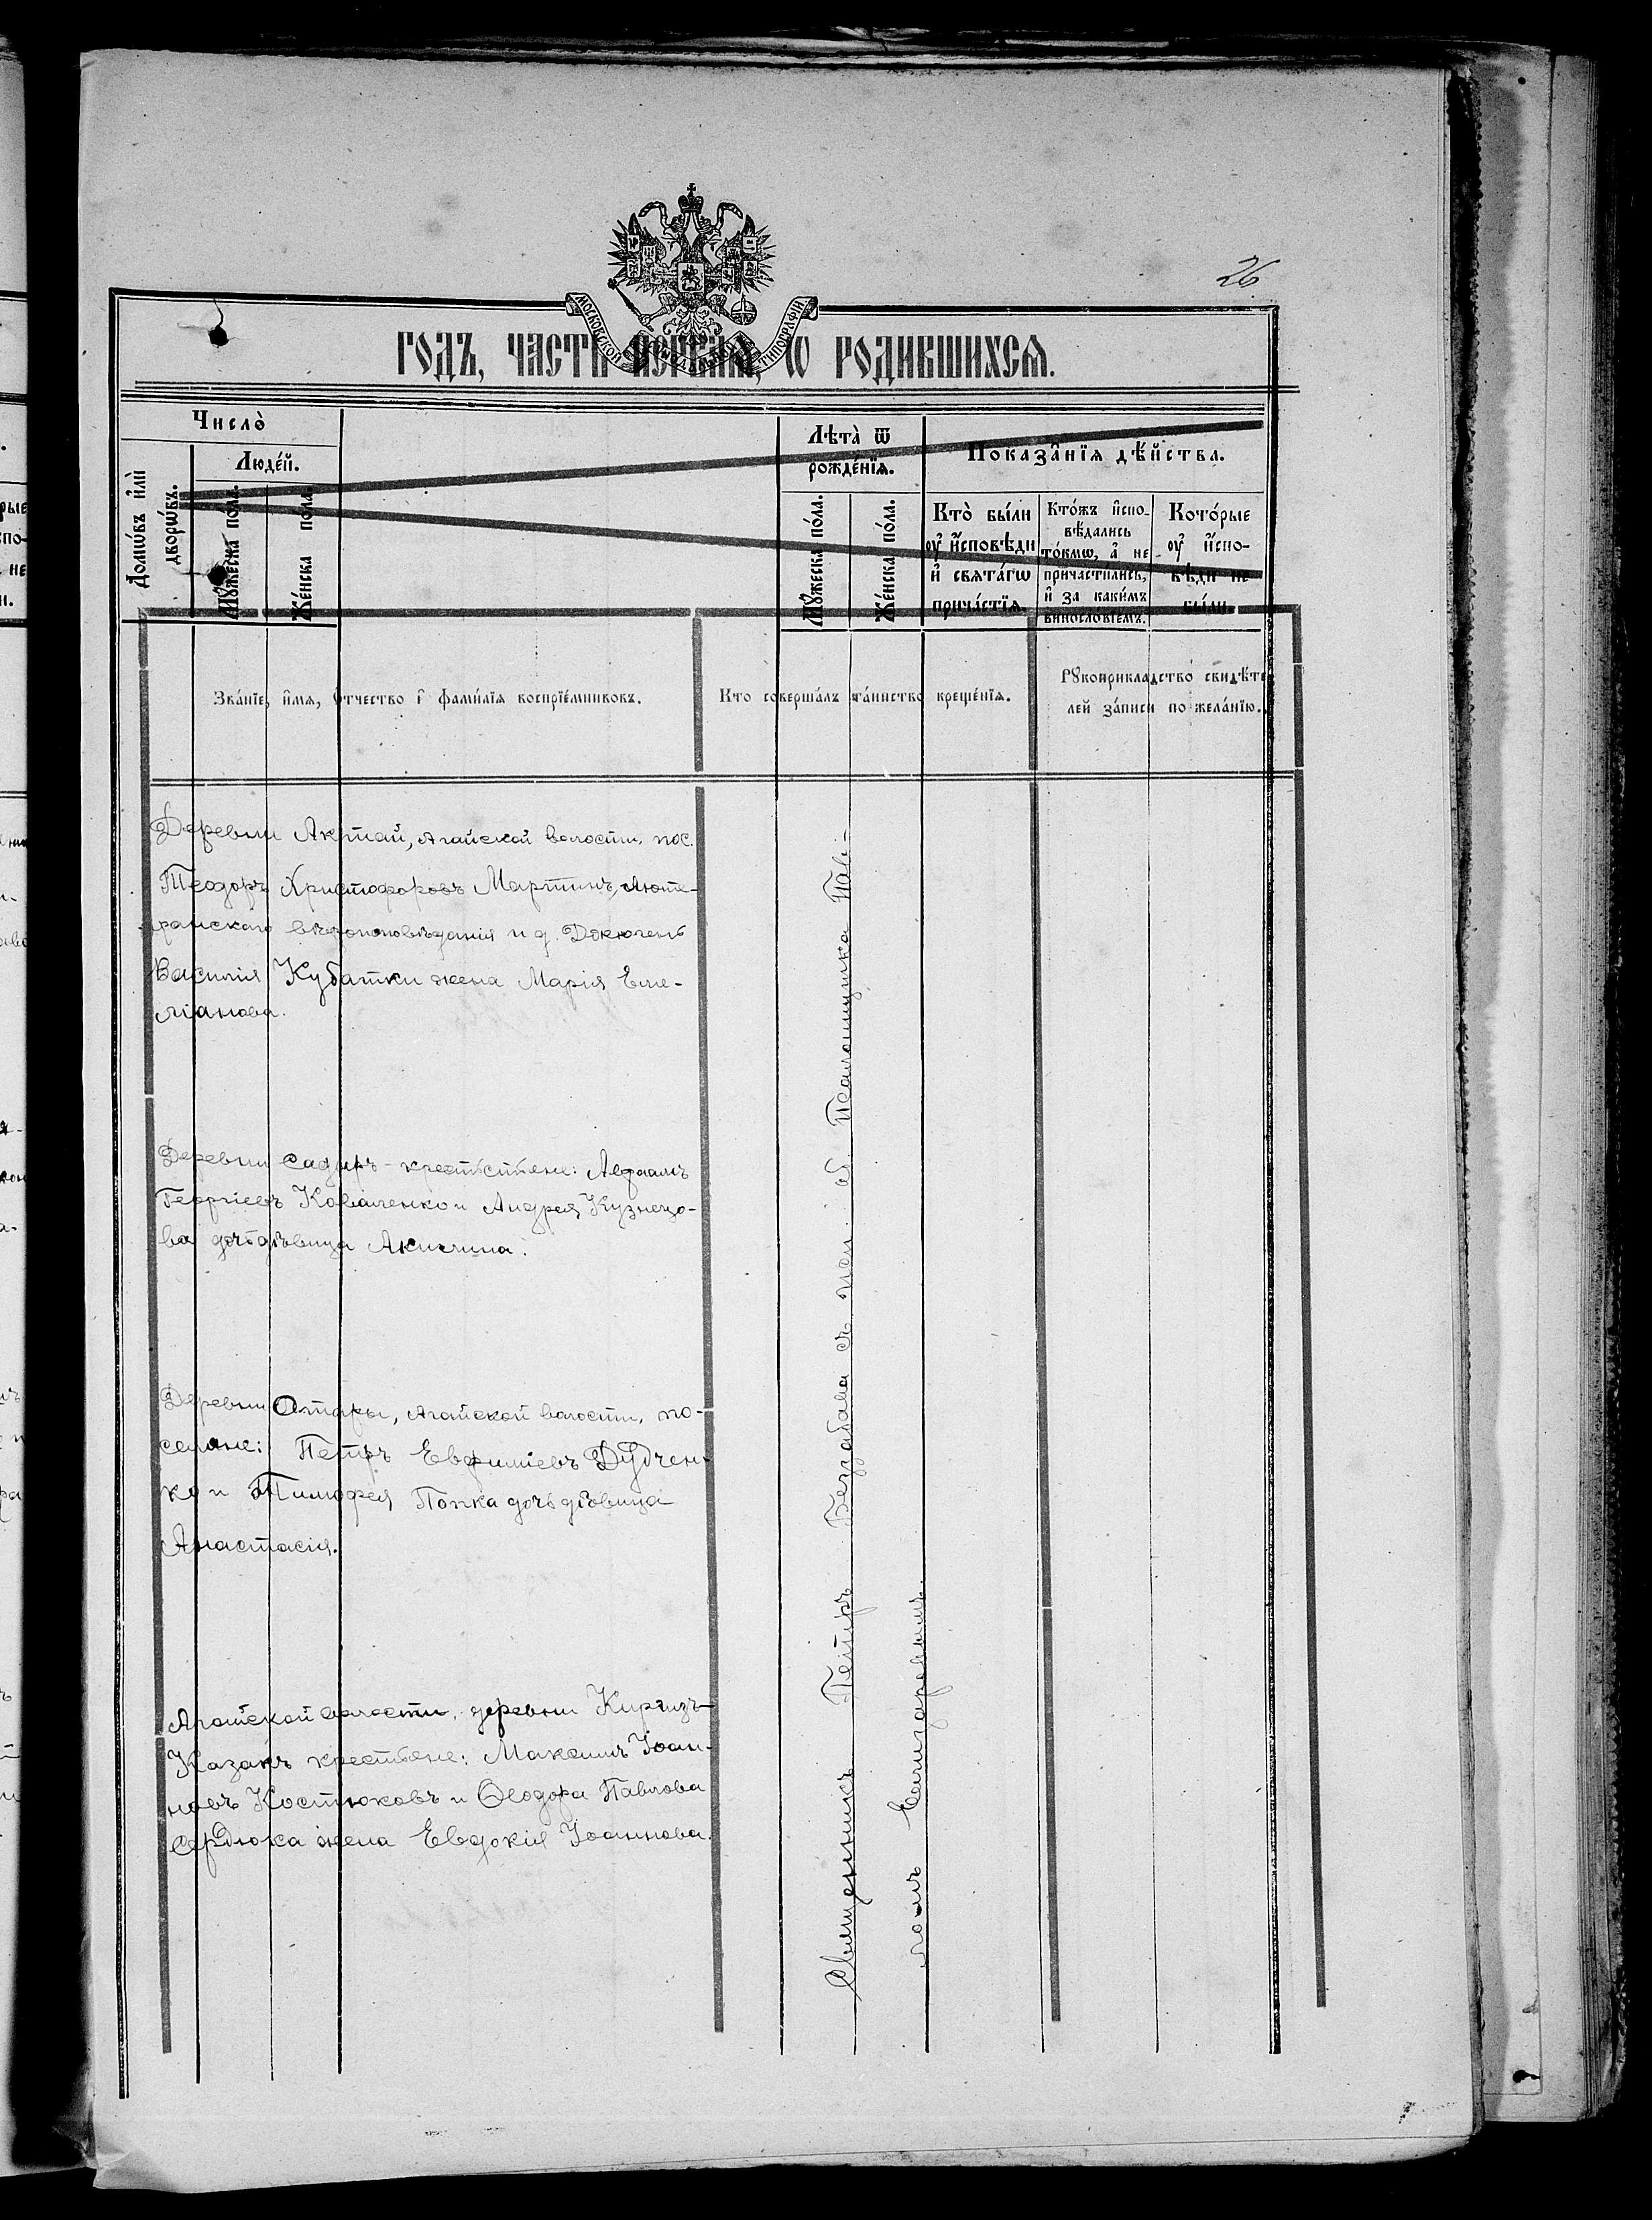 26
МОСКОВСКОЙ СѴНОДАЛЬНОЙ ТИПОГРАФІИ
ГОДЪ, ЧАСТЬ ПЕРВАЯ, Ѡ РОДИВШИХСЯ.
Число̀
Домѡ́въ и҆лѝ дворѡ́въ.
Люде́й.
Мꙋ́жеска по́ла.
Же́нска по́ла.
Лѣта̀ ѿ рожде́нїя.
Мꙋ́жеска по́ла.
Же́нска по́ла.
Показа̑нїѧ дѣ́йства.
Кто̀ бы́ли оу҆ и҆́сповѣди и҆ свята́гѡ прича́стїѧ.
Кто́жъ и҆спо-
вѣ́дались
то́кмѡ, а҆ не
причасти́лись,
и҆ за каки́мъ
винослѡ́вїемъ.
Кото́рые
оу҆ и҆́спо-
вѣди не
бы́ли.
Зва́нїе, и҆́мя, ѻ҆́тчество и҆ фами́лїя воспрїе́мниковъ.
Кто соверша́лъ та́инство креще́нїя.
Рꙋкоприкла́дство свидѣ́те
лей за́писи по жела́нїю.
Деревни Актай, Агайской волости, пос.
Теодоръ Христофоровъ Мартинъ, люте-
ранскаго вѣроисповѣданія и д. Джюгень
Василія Кубатки жена Марія Еме-
ліанова.
Деревни Садыръ - крестьяне: Авраамъ
Георгіевъ Коваленко и Андрея Кузнецо-
ва дочь дѣвица Акилина.
Деревни Отары, Агайской волости, по-
селяне: Петръ Евфиміевъ Дудчен-
ко и Тимофея Попка дочь дѣвица
Анастасія.
Агайской волости, деревни Киргизъ-
Казакъ крестьяне: Максимъ Іоан-
новъ Костюковъ и Ѳеодора Павлова
Сердюка жена Евдокія Іоаннова.
Священникъ Петръ Беззабава съ и. д. Псаломщика Пав-
ломъ